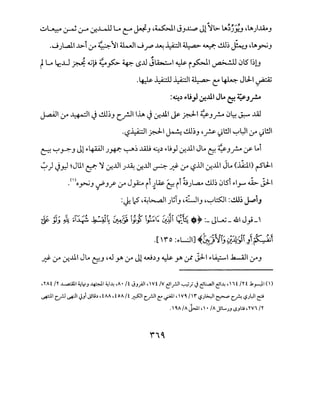 ومقدارها، ويُوَرِّدُها حالاً إلى صندوق المحكمة، ويجعل ما للمدين من ثمن مبيعات
ونحوها، ويمثل ذلك جميعه حصيلة التنفيذ بعد صرف العملة الأجنبيَّة من أحد المصارف.
وإذا كان للشخص المحكوم عليه استحقاقٌ لدى جهة حكوميَّة فإنه يُحجز لديها ما لم
تقتض الحال جعلها مع حصيلة التنفيذ للتنفيذ عليها.
مشروعيَّة بيع مال المدين لوفاء دينه:
لقد سبق بيان مشروعيَّة الحجز على المدين في هذا الشرح وذلك في التمهيد من الفصل
الثاني من الباب الثاني عشر، وذلك يشمل الحجز التنفيذي.
أما عن مشروعيَّة بيع مال المدين لوفاء دينه فلقد ذهب جمهور الفقهاء إلى وجوب بيع
الحاكم (المنفِّذ) مال المدين الذي من غير جنس الدين بقدر الدين لا جميع المال؛ ليوفي لربِّ
الحقّ حقّه سواء أكان ذلك مصارفةً أم بيع عقارٍ أم منقول من عروض ونحوه(١).
وأصل ذلك: الكتاب، والسنَّة، وآثار الصحابة، كما يلي:
١- قول الله ـ تعالى ـ: ﴿ يَٰٓأَيُّهَا ٱلَّذِينَ ءَامَنُوا۟ كُونُوا۟ قَوَّٰمِينَ بِٱلْقِسْطِ شُهَدَآءَ لِلَّهِ وَلَوْ عَلَىٰٓ
أَنفُسِكُمْ أَوِ ٱلْوَٰلِدَيْنِ وَٱلْأَقْرَبِينَ﴾ [النساء: ١٣٥].
ومن القسط استيفاء الحقّ ممن هو عليه ودفعه إلى من هو له، وبيع مال المدين من غير
(١) المبسوط ٢٤/ ١٦٤، بدائع الصنائع في ترتيب الشرائع ٧/ ١٧٤، الفروق ٤/ ٨٠، بداية المجتهد ونهاية المقتصد ٢/ ٢٨٤،
فتح الباري بشرح صحيح البخاري ١٣/ ١٧٩، المغني مع الشرح الكبير ٤/ ٤٥٨، ٤٨٨، دقائق أولي النهى لشرح المنتهى
٢/ ٢٧٦، فتاوى ورسائل ٨/ ١٠، المحلَّى ٨/ ١٩٨.
٣٦٩